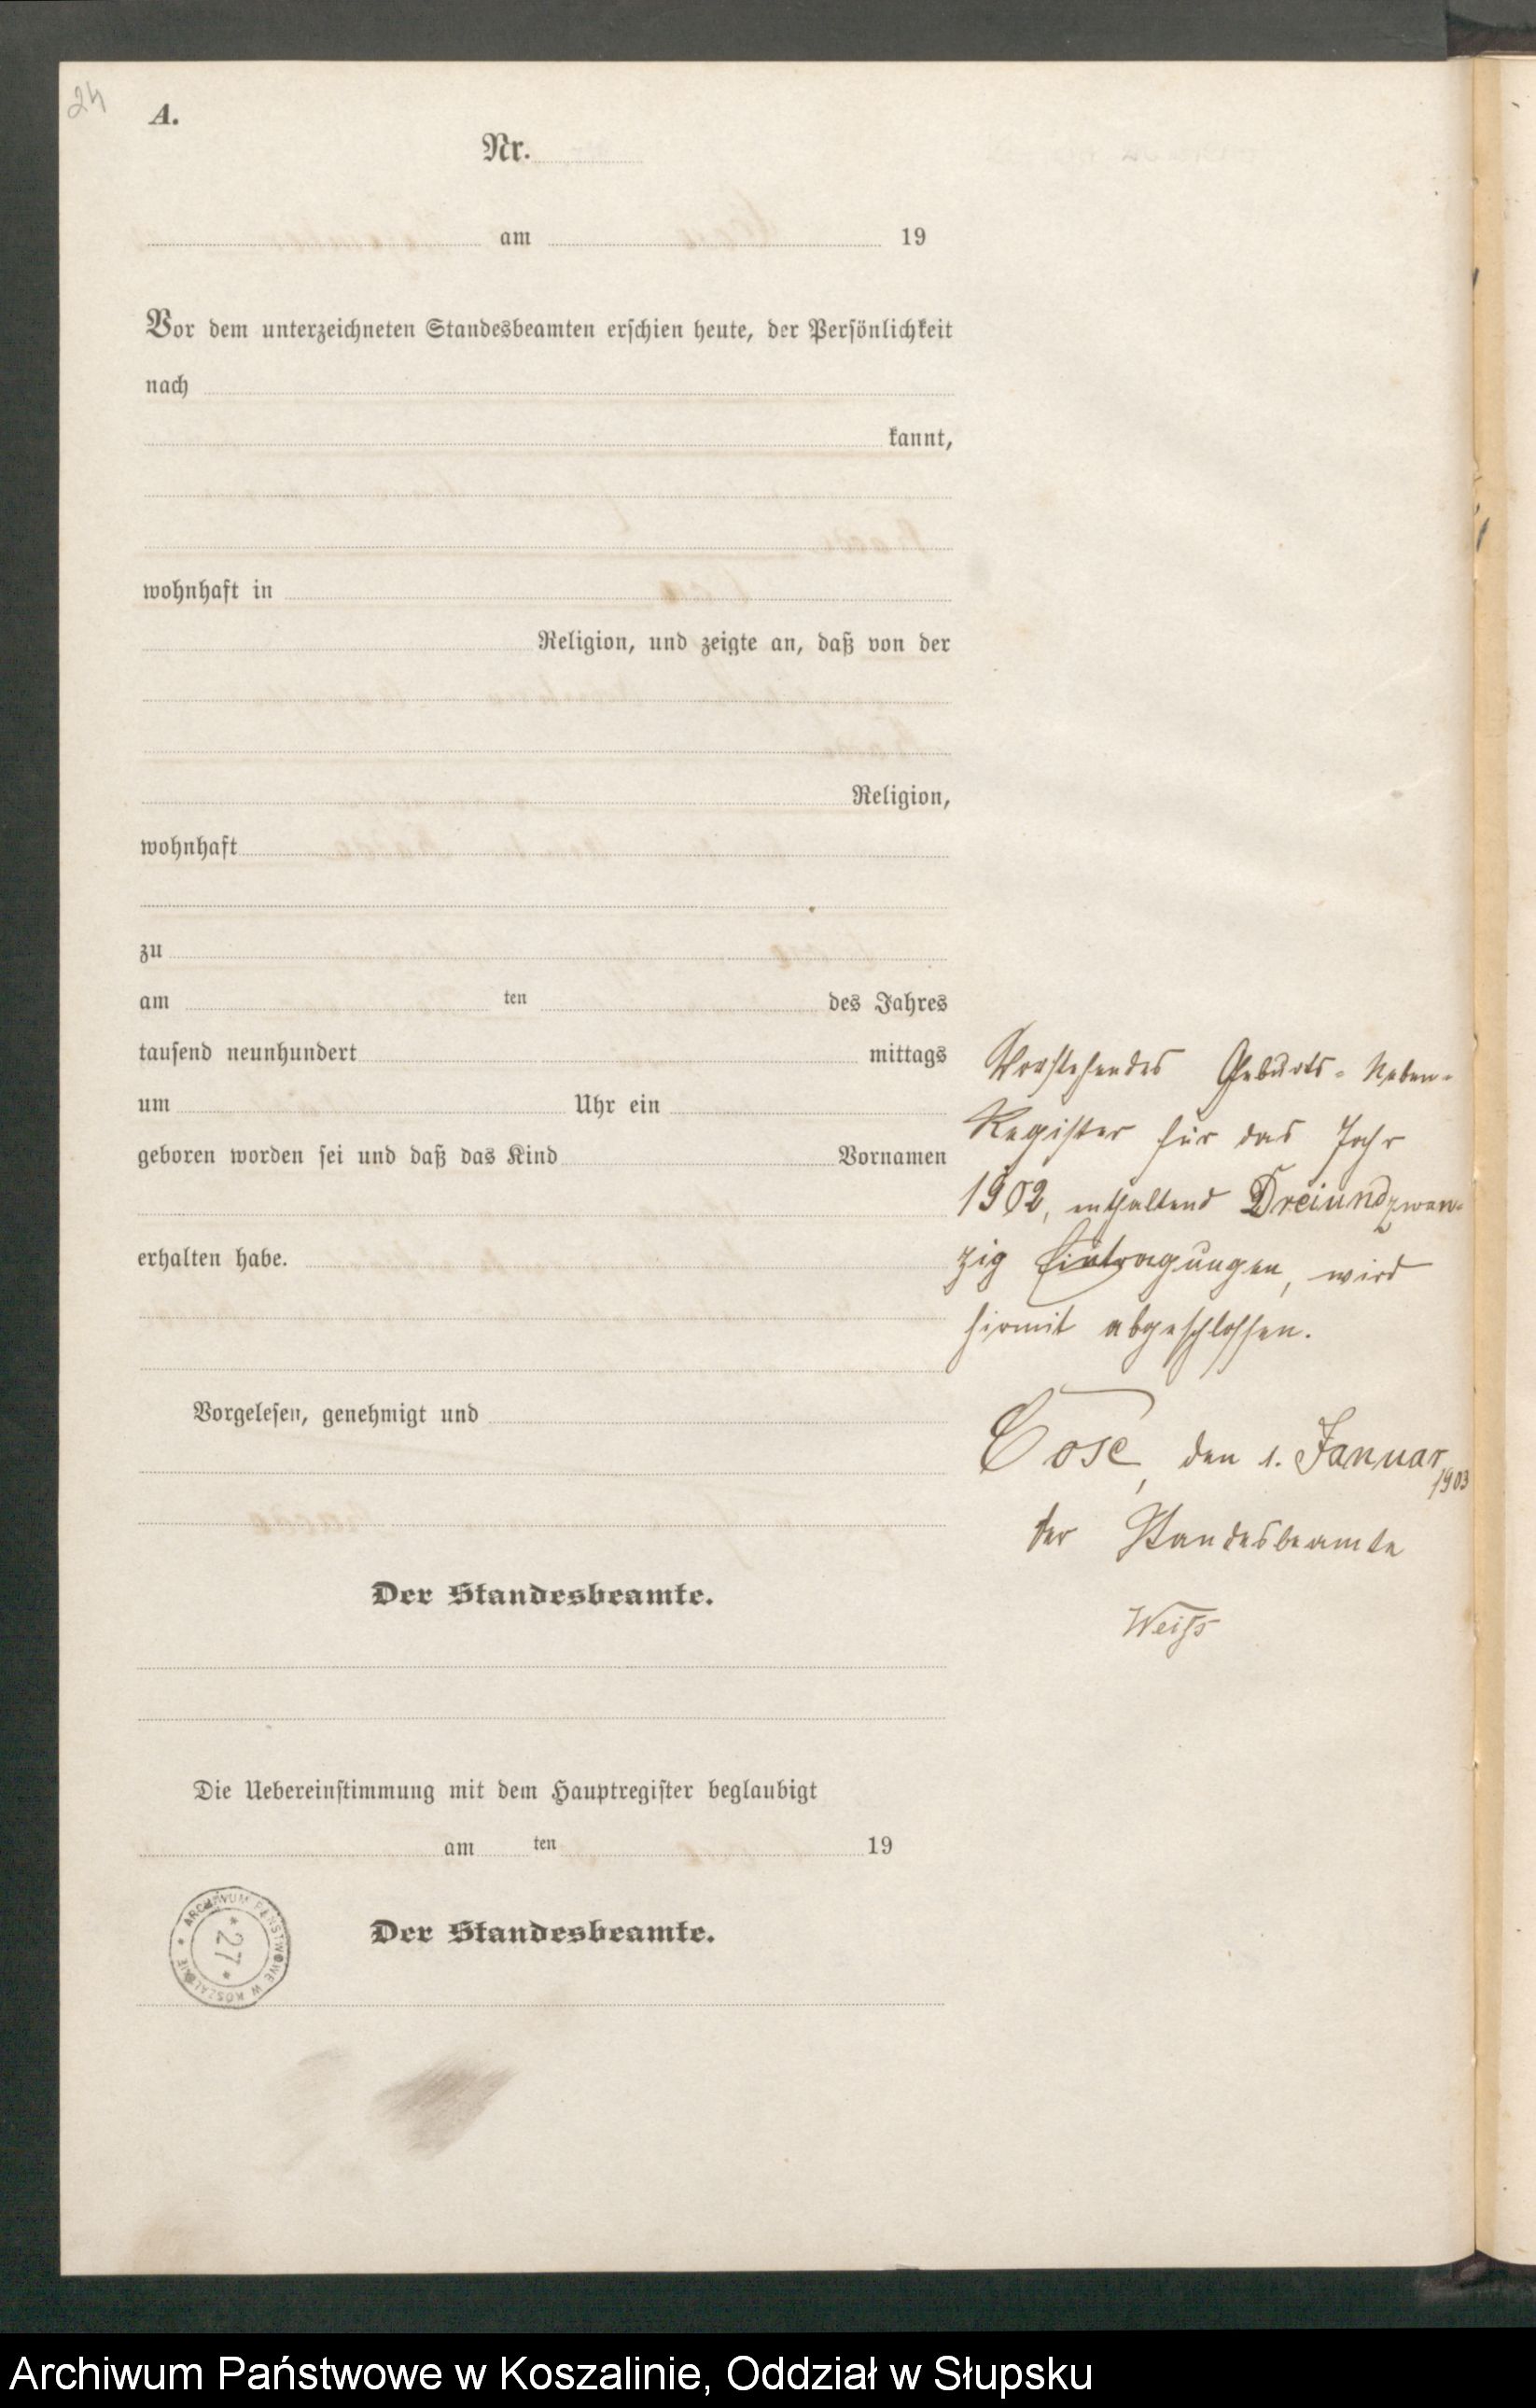 24
A.
Nr.
am 19
Vor dem unterzeichneten Standesbeamten erschien heute, der Persönlichkeit
nach
kannt,
wohnhaft in
Religion, und zeigte an, daß von der
Religion,
wohnhaft
zu
am ten des Jahres
tausend neunhundert mittags
um Uhr ein
geboren worden sei und daß das Kind Vornamen
erhalten habe.
Vorgelesen, genehmigt und
Der Standesbeamte.
Die Uebereinstimmung mit dem Hauptregister beglaubigt
am ten 19
Der Standesbeamte.
ARCHIWUM PAŃSTWOWE W KOSZALINIE
* 27 *
Vorstehendes Geburts-Neben-
Register für das Jahr
1902, enthaltend Dreiundzwan-
zig Eintragungen, wird
hirmit abgeschlossen.
Cose, den 1. Januar 1903
der Standesbeamte
Weiß
Archiwum Państwowe w Koszalinie, Oddział w Słupsku